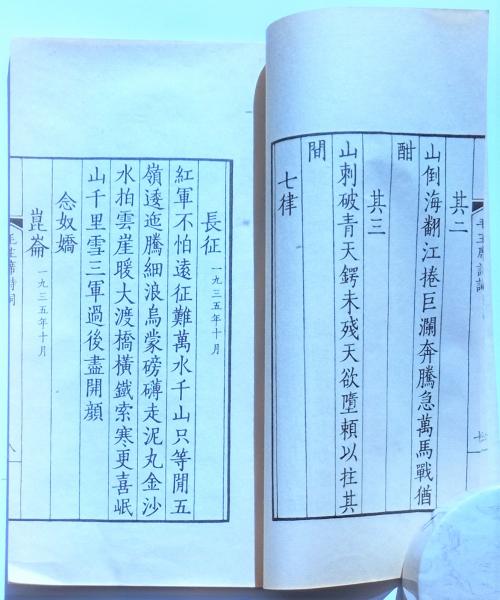 其二
山倒海翻江捲巨瀾奔騰急萬馬戰猶
酣
其三
山刺破青天鍔未殘天欲墮賴以拄其
間
七律
長征 一九三五年十月
紅軍不怕遠征難萬水千山只等閒五
嶺逶迤騰細浪烏蒙磅礴走泥丸金沙
水拍雲崖暖大渡橋橫鐵索寒更喜岷
山千里雪三軍過後盡開顏
念奴嬌
崑崙 一九三五年十月
毛主席詩詞
八